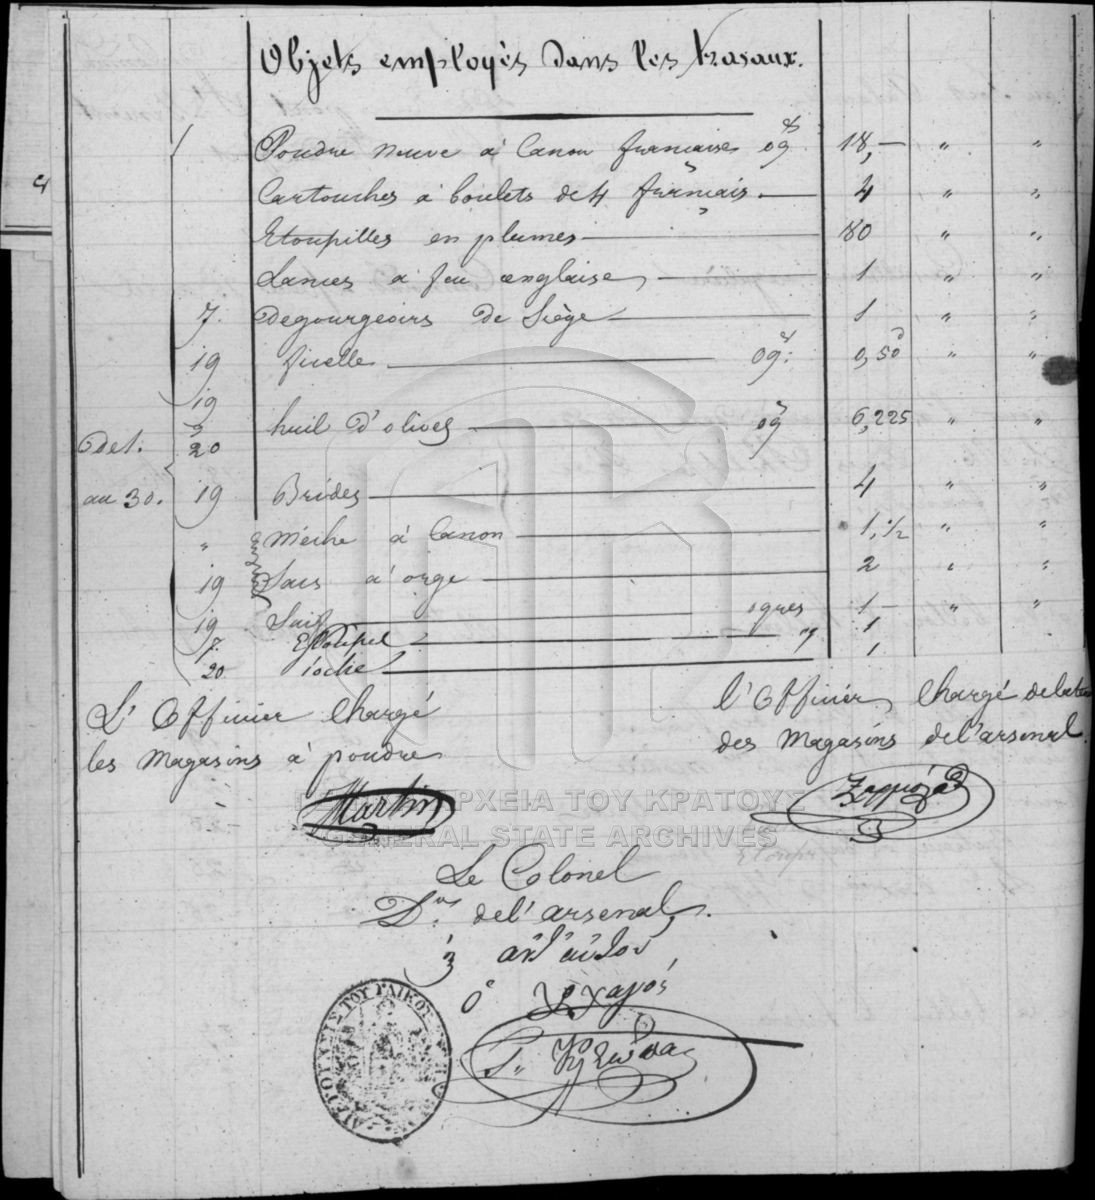 Objets employés dans les travaux.
Poudre neuve à Canon française og 18, — " "
Cartouches à boulets de 4 français. — 4 " "
Etoupilles en plumes — 80 " "
Lances à feu anglaise, — 1 " "
7. Degourgeoirs de Siège — 1 " "
19 ficelle — og: 0,50 " "
19
Del. 20 huil d'olives — og 6,225 " "
au 30. 19 Brides — 4 " "
" Mèche à Canon — 1,1/2 " "
19 Sacs à orge — 2 " "
19 Suif — oques 1 — " "
7. — " 1
20 Pioche — 1
L'Officier Chargé
les Magasins à poudre
Martin
l'Officier, Chargé
des Magasins de l'arsenal.
ΓΕΝΙΚΑ ΑΡΧΕΙΑ ΤΟΥ ΚΡΑΤΟΥΣ
GENERAL STATE ARCHIVES
Le Colonel
Dr. de l'arsenal.
ἀντ' αὐτοῦ
Ὁ